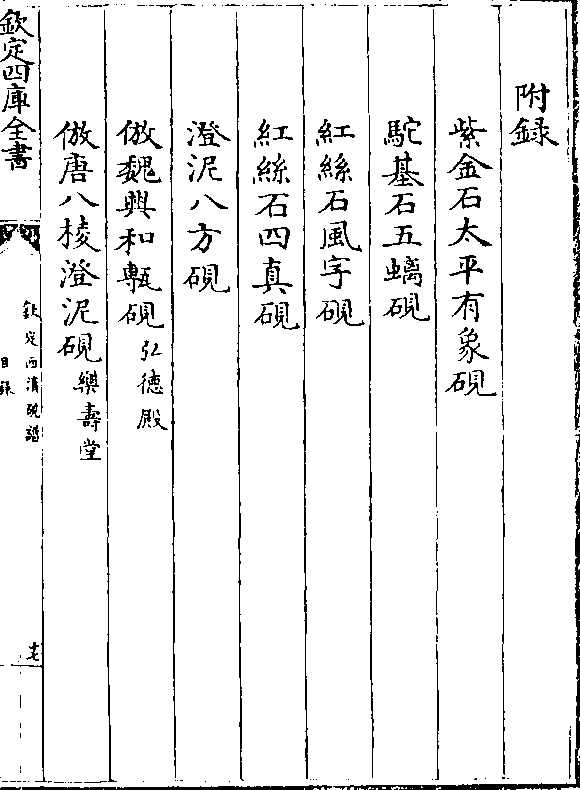 附録
紫金石太平有象硯
駝基石五螭硯
紅絲石風字硯
紅絲石四真硯
澄泥八方硯
倣魏興和甎硯 弘德殿
倣唐八棱澄泥硯 樂壽堂
欽定四庫全書
欽定西清硯譜
目録